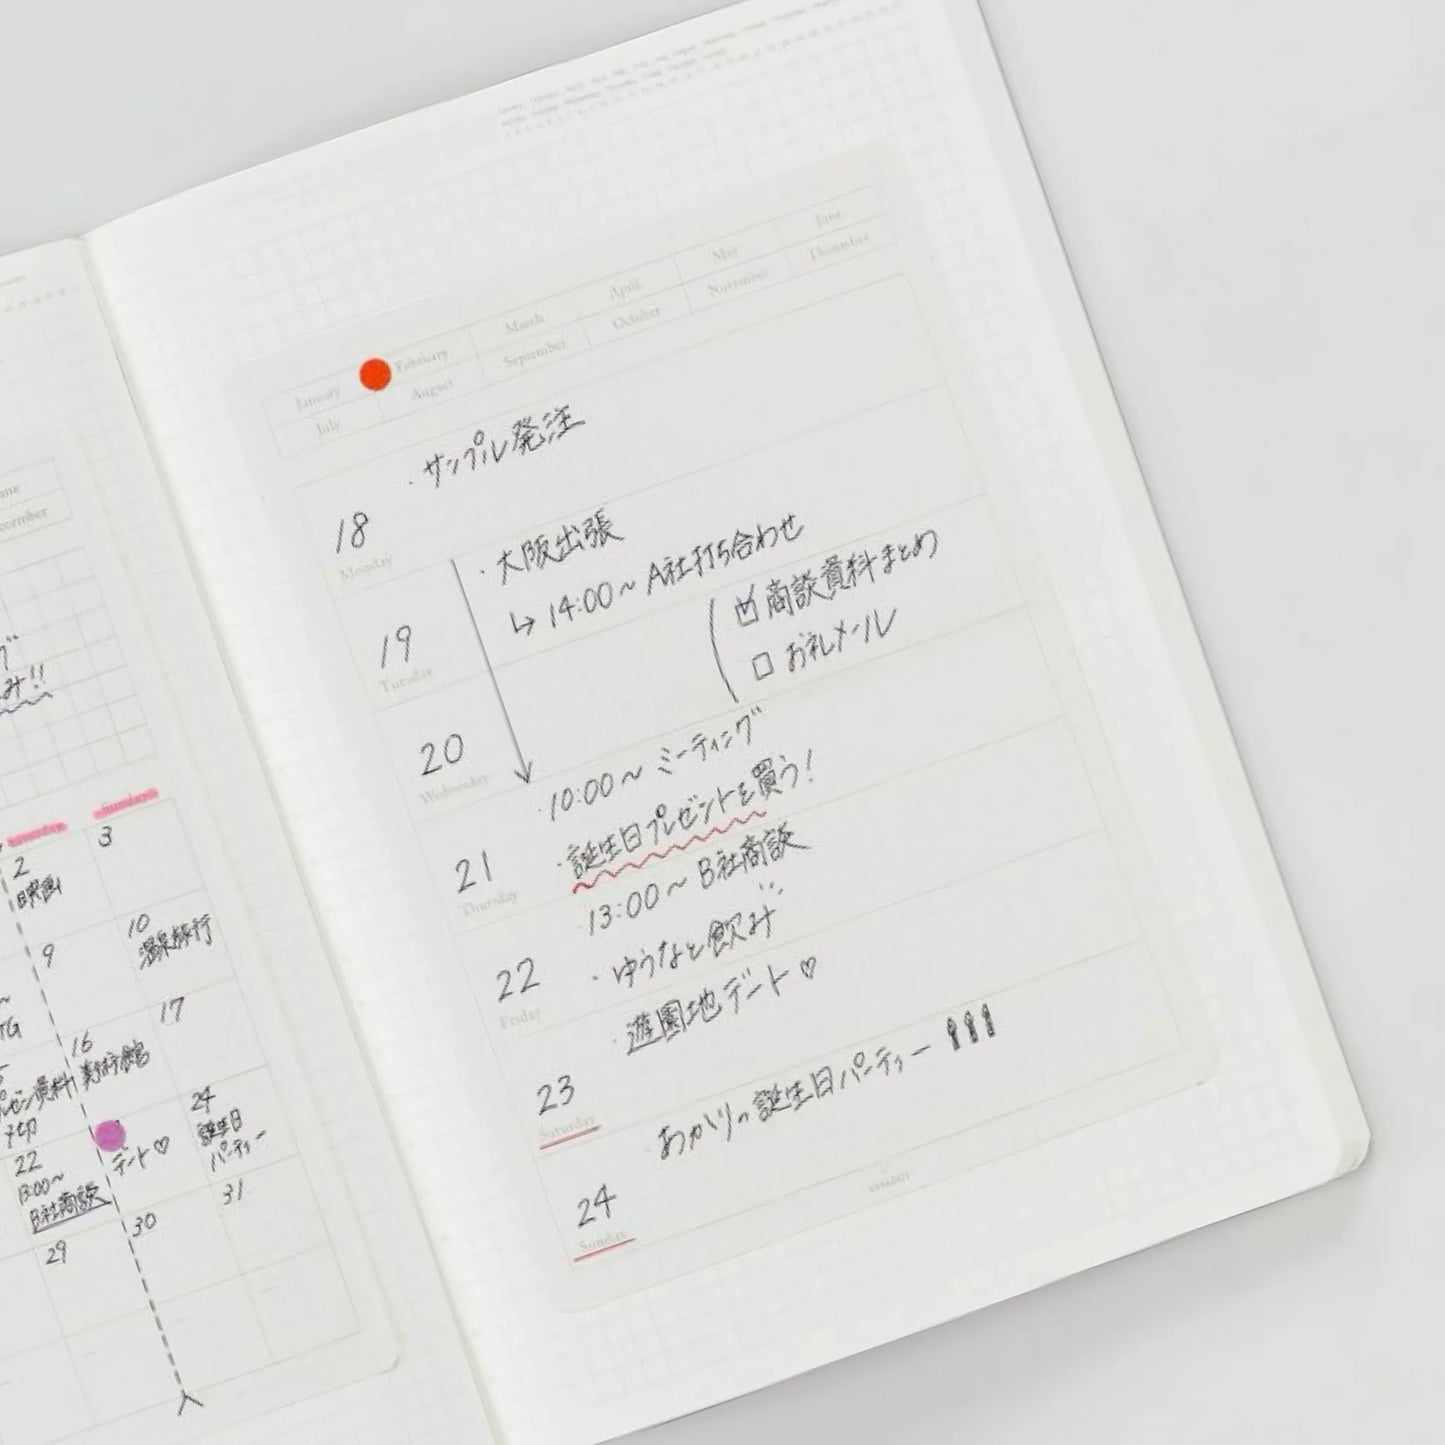 January February March April May June
July August September October November December
・サンプル発注
18
Monday
・大阪出張
↳ 14:00〜 A社打ち合わせ
19
Tuesday
☑ 商談資料まとめ
□ お礼メール
20
Wednesday
・10:00〜 ミーティング
・誕生日プレゼントを買う!
21
Thursday
・13:00〜 B社商談
・ゆうなと飲み
22
Friday
・遊園地デート♡
23
Saturday
・あかりの誕生日パーティー
24
Sunday
み!!
Sunday
2
映画
3
9
10
温泉旅行
16
美術館
17
22
13:00〜
B社商談
デート♡
24
誕生日
パーティー
29
30
31